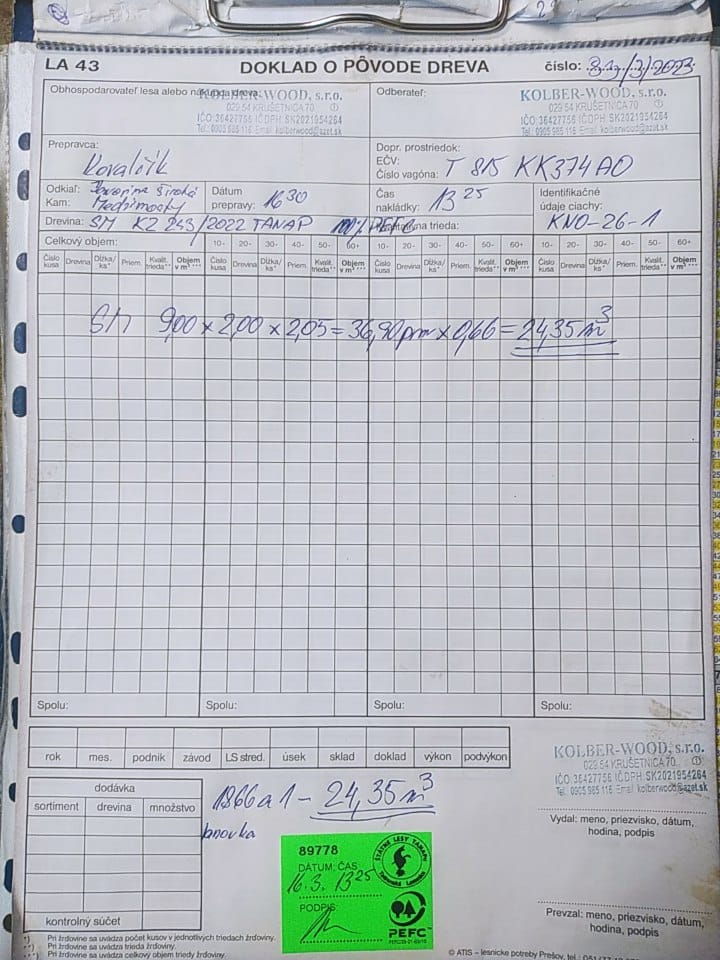 LA 43
DOKLAD O PÔVODE DREVA
číslo: 33/3/2023
Obhospodarovateľ lesa alebo nákupca dreva:
KOLBER-WOOD, s.r.o.
029 54 KRUŠETNICA 70 ①
IČO: 36427756 IČDPH: SK2021954264
Tel.: 0905 985 116 Email: kolberwood@azet.sk
Odberateľ:
KOLBER-WOOD, s.r.o.
029 54 KRUŠETNICA 70 ①
IČO: 36427756 IČDPH: SK2021954264
Tel.: 0905 985 116 Email: kolberwood@azet.sk
Prepravca:
Kovalčík
Dopr. prostriedok:
EČV:
Číslo vagóna: T 815 KK374AO
Odkiaľ: Javorina Široká
Kam:
Dátum
prepravy: 16 30
Čas
nakládky: 13 25
Identifikačné
údaje ciachy:
KNO-26-1
Drevina: SM KZ 243/2022 TANAP 100% PEFC trieda:
Celkový objem: 10- 20- 30- 40- 50- 60+ 10- 20- 30- 40- 50- 60+ 10- 20- 30- 40- 50- 60+
Číslo kusa Drevina Dĺžka/ks* Priem. Kvalit. trieda** Objem v m³*** Číslo kusa Drevina Dĺžka/ks* Priem. Kvalit. trieda** Objem v m³*** Číslo kusa Drevina Dĺžka/ks* Priem. Kvalit. trieda** Objem v m³*** Číslo kusa Drevina Dĺžka/ks* Priem. Kvalit. trieda** Objem v m³***
SM 9,00 x 2,00 x 2,05 = 36,90 prm x 0,66 = 24,35 m³
Spolu: Spolu: Spolu: Spolu:
rok mes. podnik závod LS stred. úsek sklad doklad výkon podvýkon
KOLBER-WOOD, s.r.o.
029 54 KRUŠETNICA 70 ①
IČO: 36427756 IČDPH: SK2021954264
Tel.: 0905 985 116 Email: kolberwood@azet.sk
dodávka
sortiment drevina množstvo
kontrolný súčet
1866 a 1 - 24,35 m³
Vydal: meno, priezvisko, dátum,
hodina, podpis
89778
DÁTUM, ČAS
16.3. 13 25
PODPIS:
ŠTÁTNE LESY TANAPu
PEFC
Prevzal: meno, priezvisko, dátum,
hodina, podpis
*) Pri žrďovine sa uvádza počet kusov v jednotlivých triedach žrďoviny.
**) Pri žrďovine sa uvádza trieda žrďoviny.
***) Pri žrďovine sa uvádza celkový objem triedy žrďoviny.
© ATIS – lesnícke potreby Prešov,